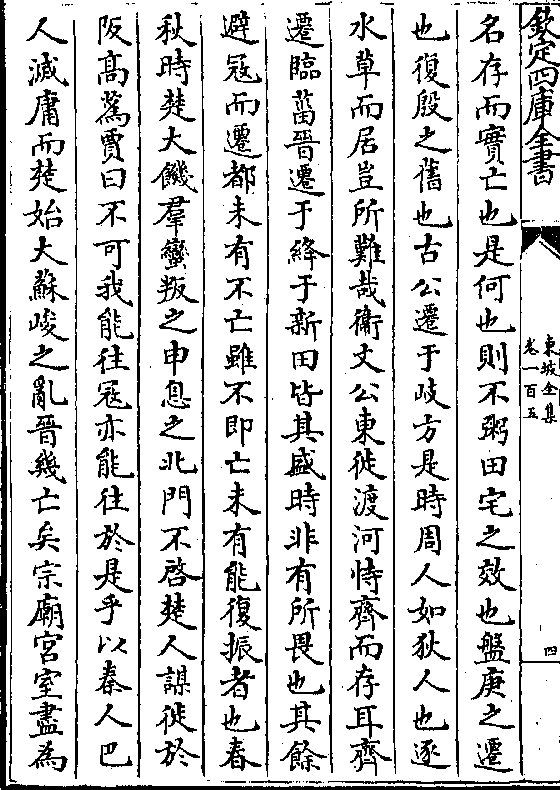 欽定四庫全書
東坡全集
卷一百五
四
名存而實亡也是何也則不鬻田宅之效也盤庚之遷
也復殷之舊也古公遷于岐方是時周人如狄人也逐
水草而居豈所難哉衞文公東徙渡河恃齊而存耳齊
遷臨菑晉遷于絳于新田皆其盛時非有所畏也其餘
避寇而遷都未有不亡雖不即亡未有能復振者也春
秋時楚大饑羣蠻叛之申息之北門不啓楚人謀徙於
阪高蔿賈曰不可我能往寇亦能往於是乎以秦人巴
人滅庸而楚始大蘇峻之亂晉幾亡矣宗廟宮室盡為